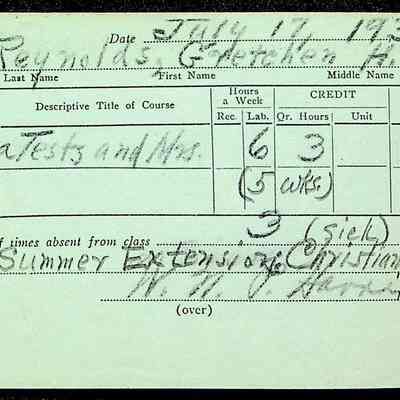 Date July 17, 193
Reynolds, Gretchen H.
Last Name First Name Middle Name
Descriptive Title of Course Hours a Week CREDIT
Rec. Lab. Qr. Hours Unit
Tests and Mrs. 6 3
(5 wks.)
f times absent from class 3 (sick)
Summer Extension, Christian
W. N.
(over)